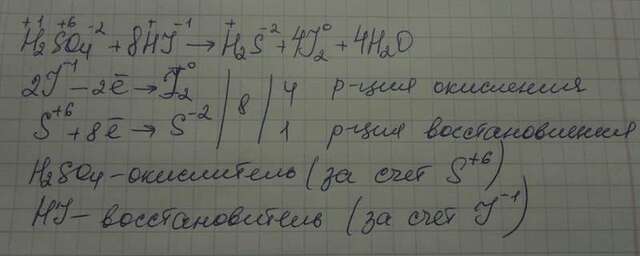 H₂⁺¹S⁺⁶O₄⁻² + 8H⁺J⁻¹ → H₂⁺S⁻² + 4J₂⁰ + 4H₂O
2J⁻¹ - 2ē → J₂⁰ | 8 | 4 р-ция окисления
S⁺⁶ + 8ē → S⁻² | | 1 р-ция восстановления
H₂SO₄ - окислитель (за счет S⁺⁶)
HJ - восстановитель (за счет J⁻¹)